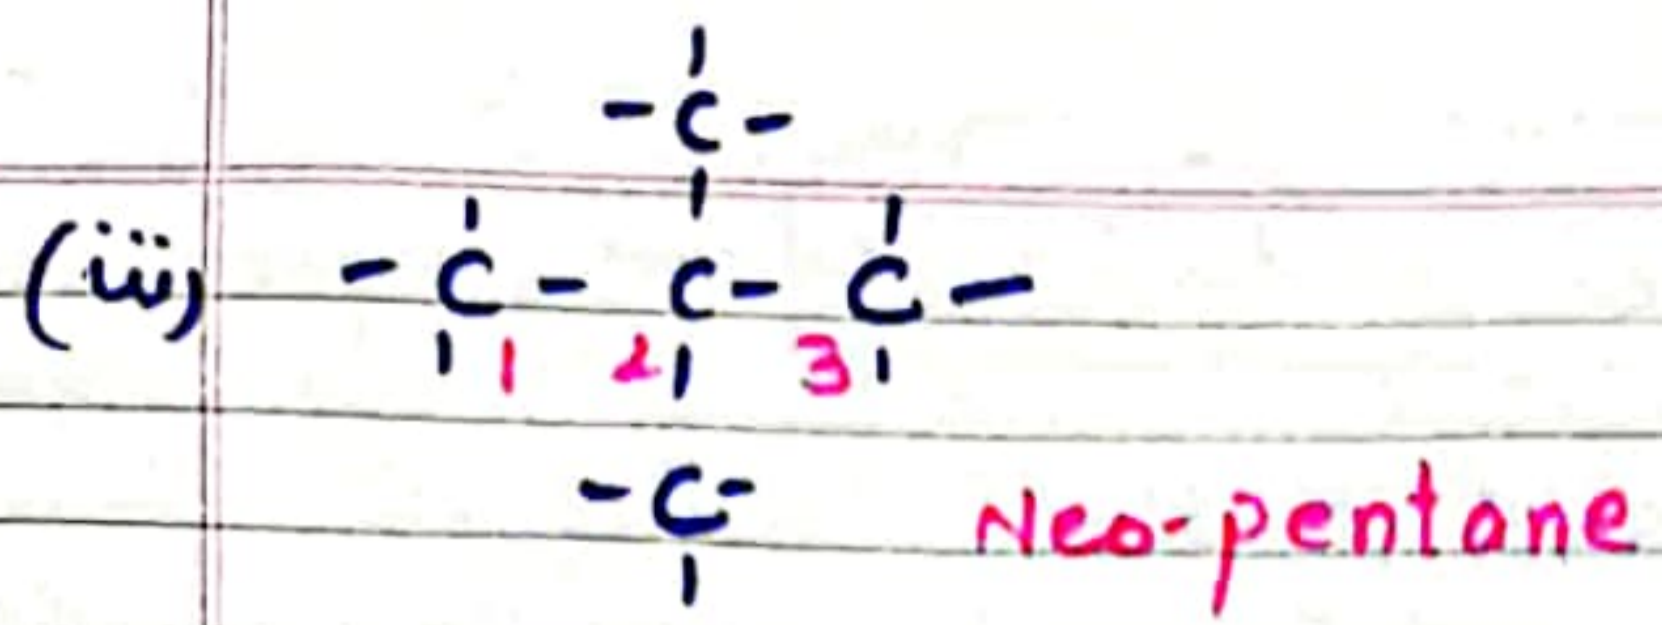 |
- C -
|
(iii) - C - C - C -
| 1 2 | 3 |
- C - Neo-pentane
|